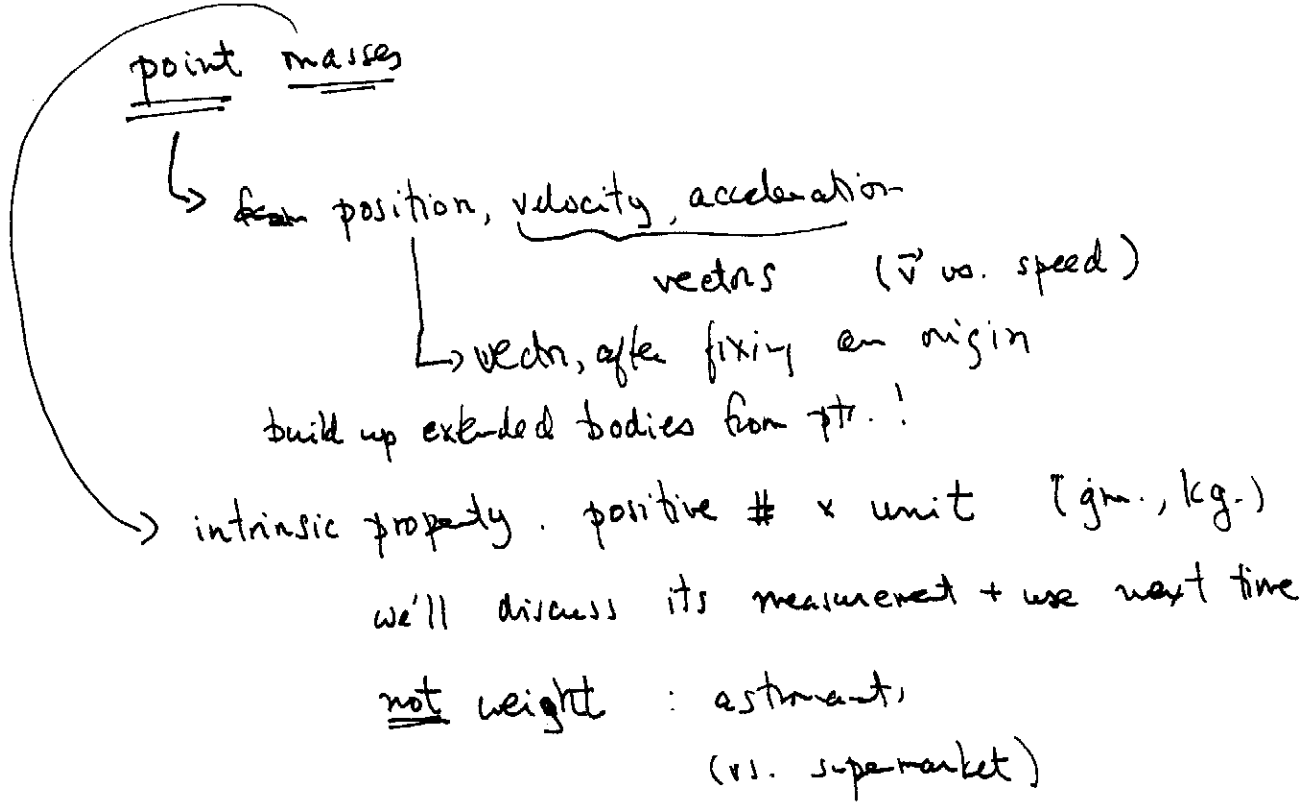 point masses
position, velocity, acceleration
vectors (v⃗ vs. speed)
vector, after fixing an origin
build up extended bodies from pts.!
intrinsic property. positive # x unit (gm., kg.)
we'll discuss its measurement + use next time
not weight : astronauts
(vs. supermarket)